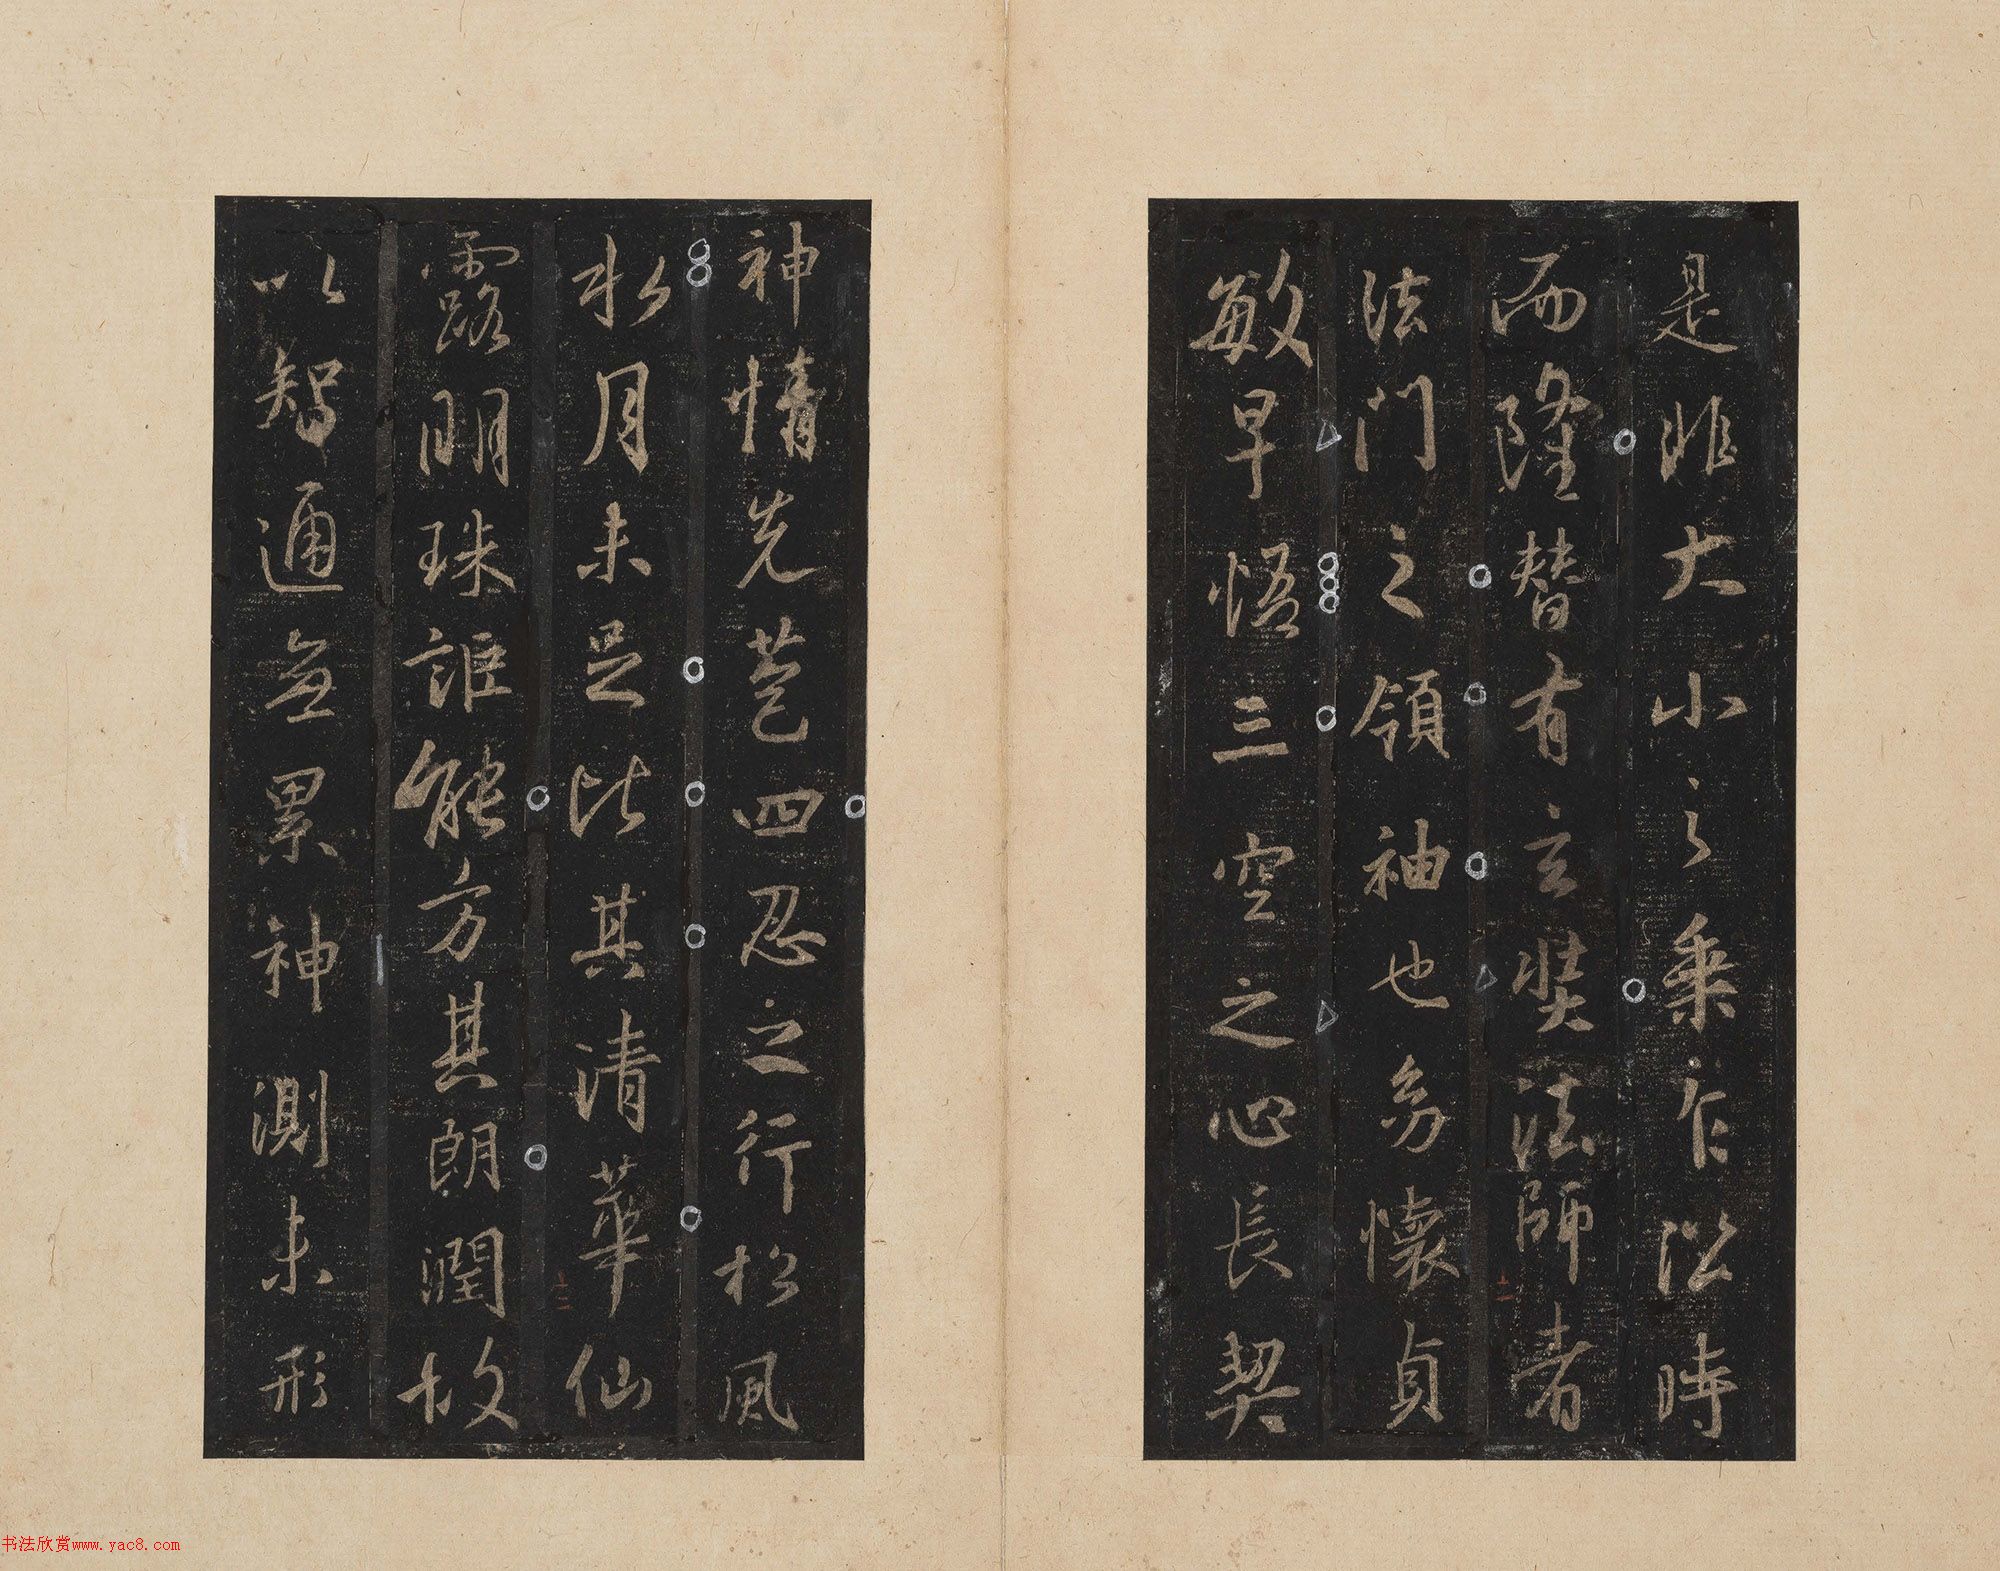 是非大小之乘乍㳂時
而隆替有玄奘法師者
法門之領袖也幼懷貞
敏早悟三空之心長契
神情先苞四忍之行松風
水月未足比其清華仙
露明珠詎能方其朗潤故
以智通無累神測未形
十二
十三
书法欣赏www.yac8.com